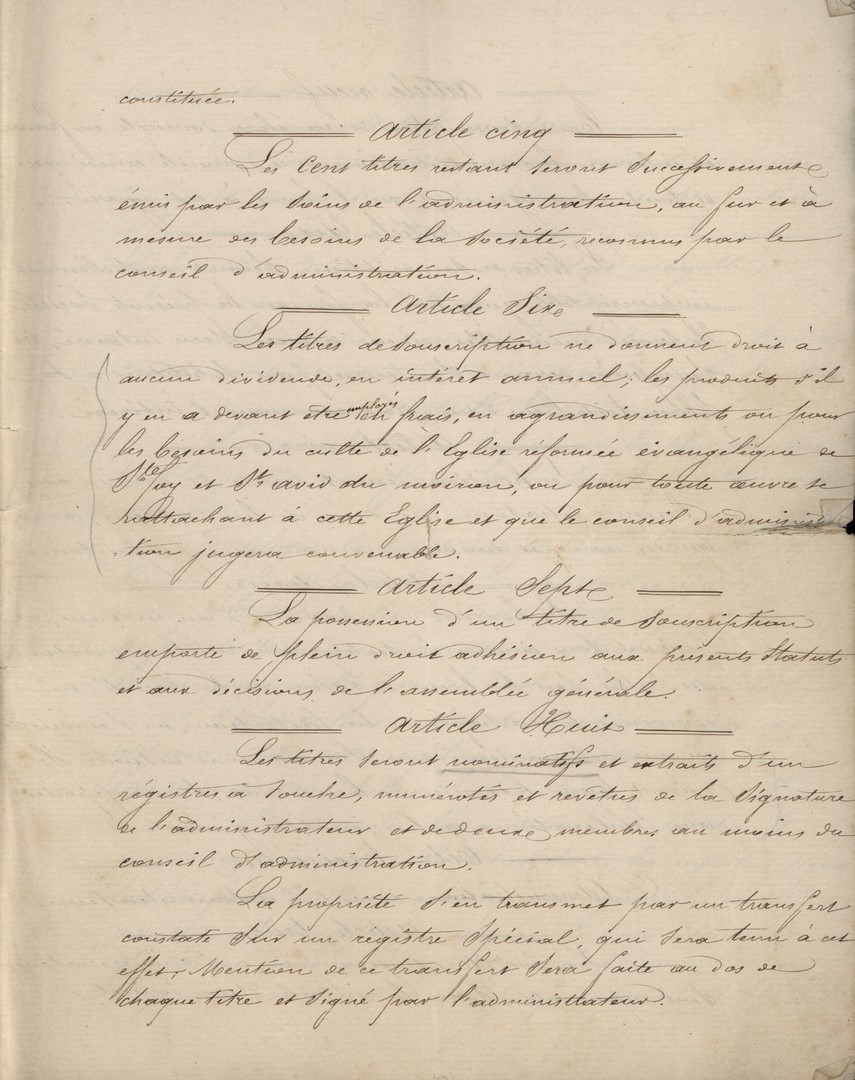 constituée.
Article cinq
Les cent titres restant seront successivement
émis par les soins de l'administration, au fur et à
mesure des besoins de la société, reconnus par le
conseil d'administration.
Article Six
Les titres de souscription ne donnent droit à
aucun dividende, en intérêt annuel; les produits s'il
y en a devant être employés en frais, en agrandissements ou pour
les besoins du culte de l'Eglise réformée évangélique de
Ste foy et St avid du moiron, ou pour toute œuvre se
rattachant à cette Eglise et que le conseil d'adminis
tion jugera convenable.
Article Sept
La possession d'un titre de souscription
emporte de plein droit adhésion aux présents Statuts
et aux décisions de l'assemblée générale.
Article Huit
Les titres seront nominatifs et extraits d'un
régistres à souche, numérotés et revêtus de la signature
de l'administrateur et de deux membres au moins du
conseil d'administration.
La propriété s'en transmet par un transfert
constaté sur un régistre spécial, qui sera tenu à cet
effet; Mention de ce transfert sera faite au dos de
chaque titre et signé par l'administrateur.